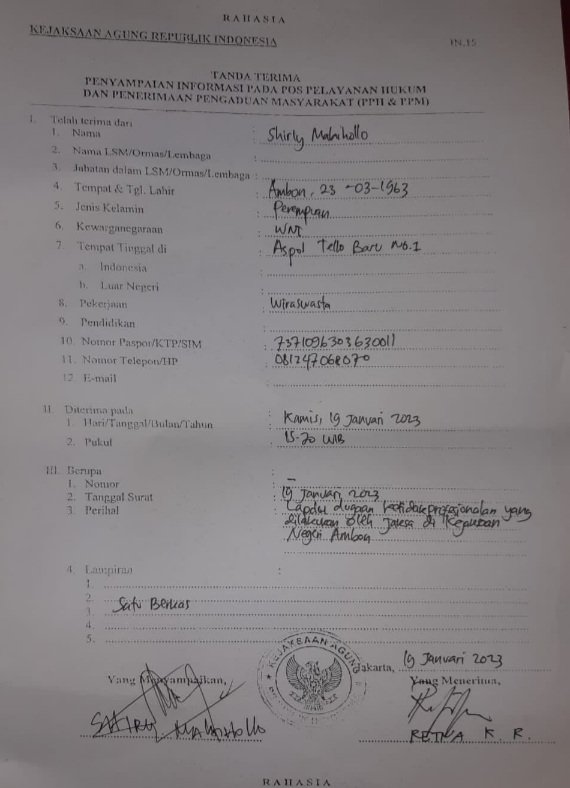 RAHASIA
KEJAKSAAN AGUNG REPUBLIK INDONESIA
IN.15
TANDA TERIMA
PENYAMPAIAN INFORMASI PADA POS PELAYANAN HUKUM
DAN PENERIMAAN PENGADUAN MASYARAKAT (PPH & PPM)
I. Telah terima dari
1. Nama : Shirly Mahihollo
2. Nama LSM/Ormas/Lembaga :
3. Jabatan dalam LSM/Ormas/Lembaga :
4. Tempat & Tgl. Lahir : Ambon, 23-03-1963
5. Jenis Kelamin : Perempuan
6. Kewarganegaraan : WNI
7. Tempat Tinggal di : Aspol Tello Baru No.1
a. Indonesia :
b. Luar Negeri :
8. Pekerjaan : Wiraswasta
9. Pendidikan :
10. Nomor Paspor/KTP/SIM : 7371096303630011
11. Nomor Telepon/HP :
12. E-mail :
II. Diterima pada
1. Hari/Tanggal/Bulan/Tahun : Kamis, 19 Januari 2023
2. Pukul : 15.20 WIB
III. Berupa :
1. Nomor : -
2. Tanggal Surat : 19 Januari 2023
3. Perihal : Lapdu dugaan ketidakprofesionalan yang
dilakukan oleh Jaksa di Kejaksaan
Negeri Ambon
4. Lampiran :
1.
2. Satu Berkas
3.
4.
5.
KEJAKSAAN AGUNG
Jakarta, 19 Januari 2023
Yang Menyampaikan, Yang Menerima,
RETNA K. R.
RAHASIA